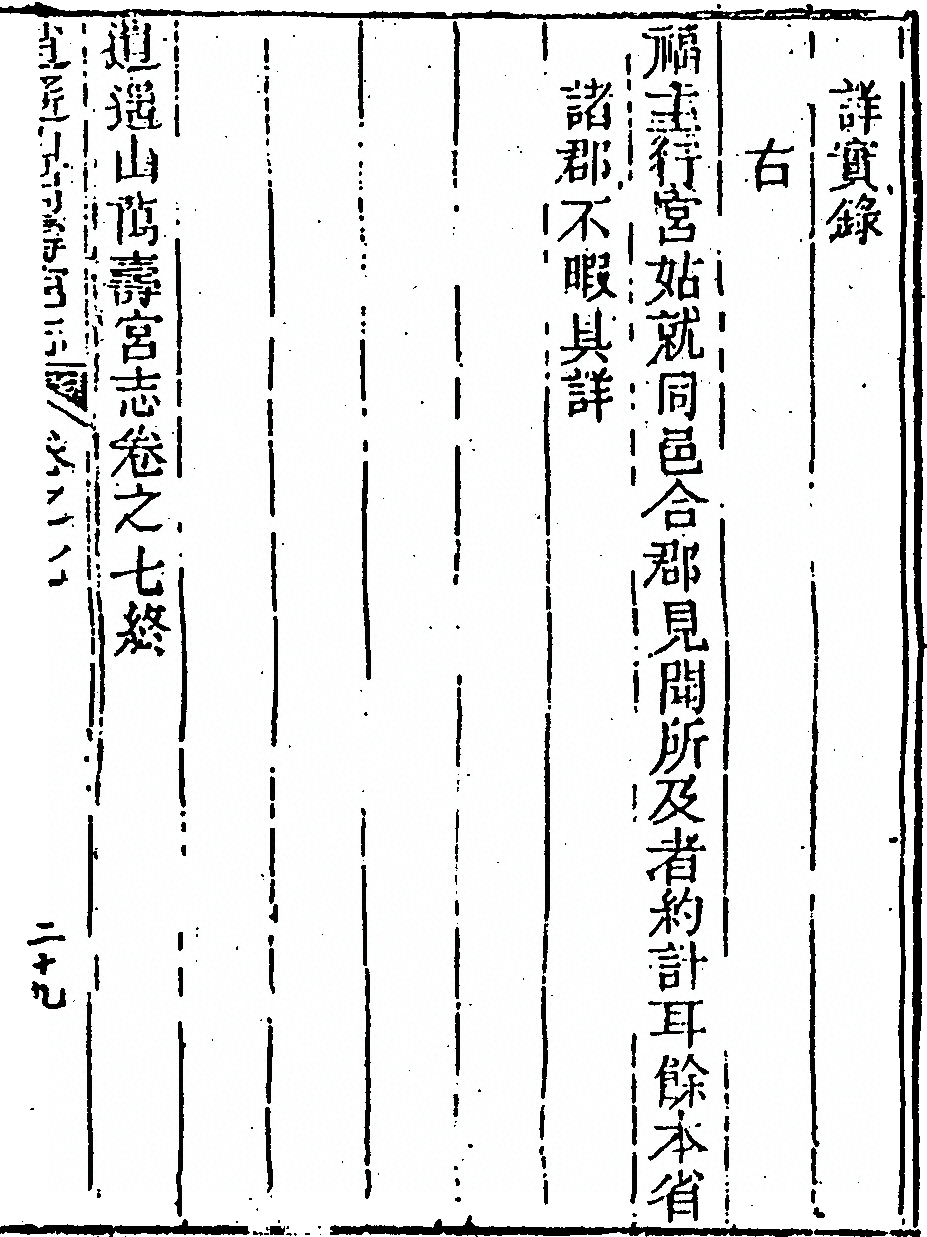 詳實錄
右
福主行宮姑就同邑合郡見聞所及者約計耳餘本省
諸郡不暇具詳
逍遥山萬壽宮志卷之七終
二十九